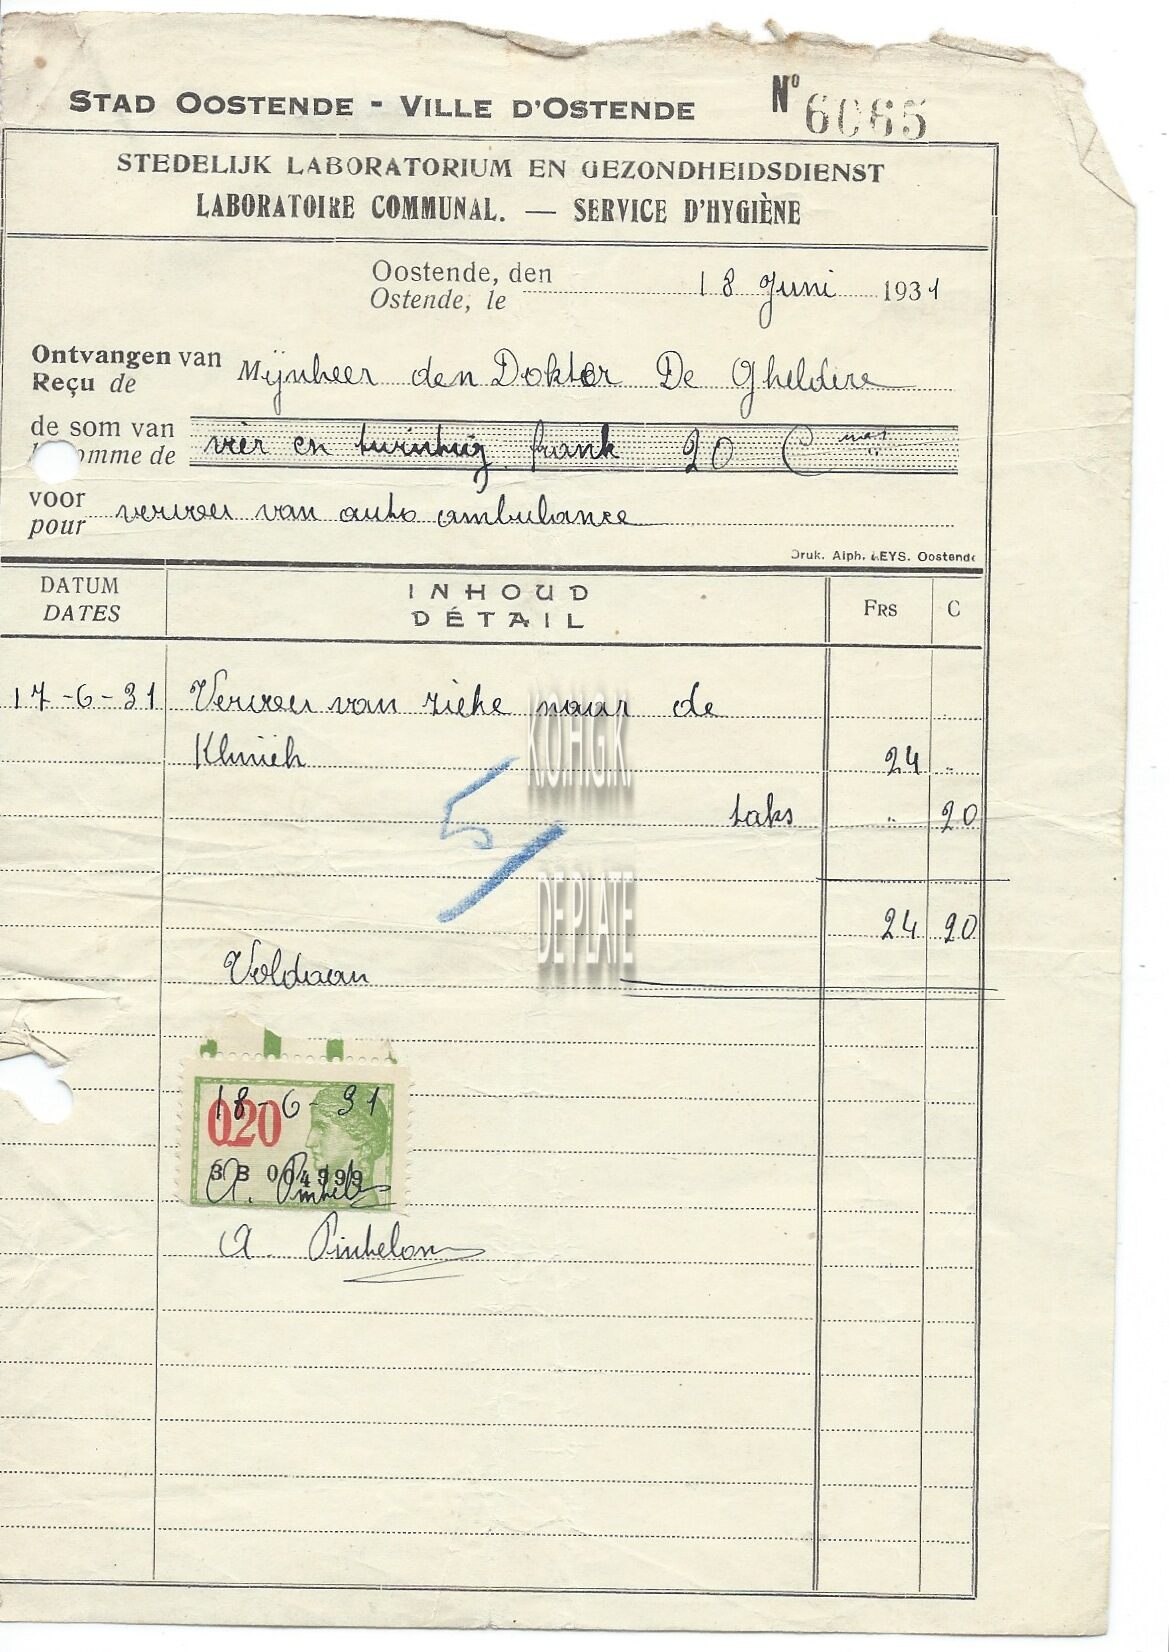 STAD OOSTENDE - VILLE D'OSTENDE
Nº 6065
STEDELIJK LABORATORIUM EN GEZONDHEIDSDIENST
LABORATOIRE COMMUNAL. — SERVICE D'HYGIÈNE
Oostende, den
Ostende, le 18 Juni 1931
Ontvangen van
Reçu de Mijnheer den Dokter De Gheldere
de som van
omme de vier en twintig frank 20 Cmes
voor
pour vervoer van auto ambulance
Druk. Alph. LEYS. Oostende
DATUM INHOUD FRS C
DATES DÉTAIL
17-6-31 Vervoer van zieke naar de
Kliniek 24 ..
taks .. 20
5
KOHGK
DE PLATE
24 20
Voldaan
18-6-31
020
3B 004999
A.
A.